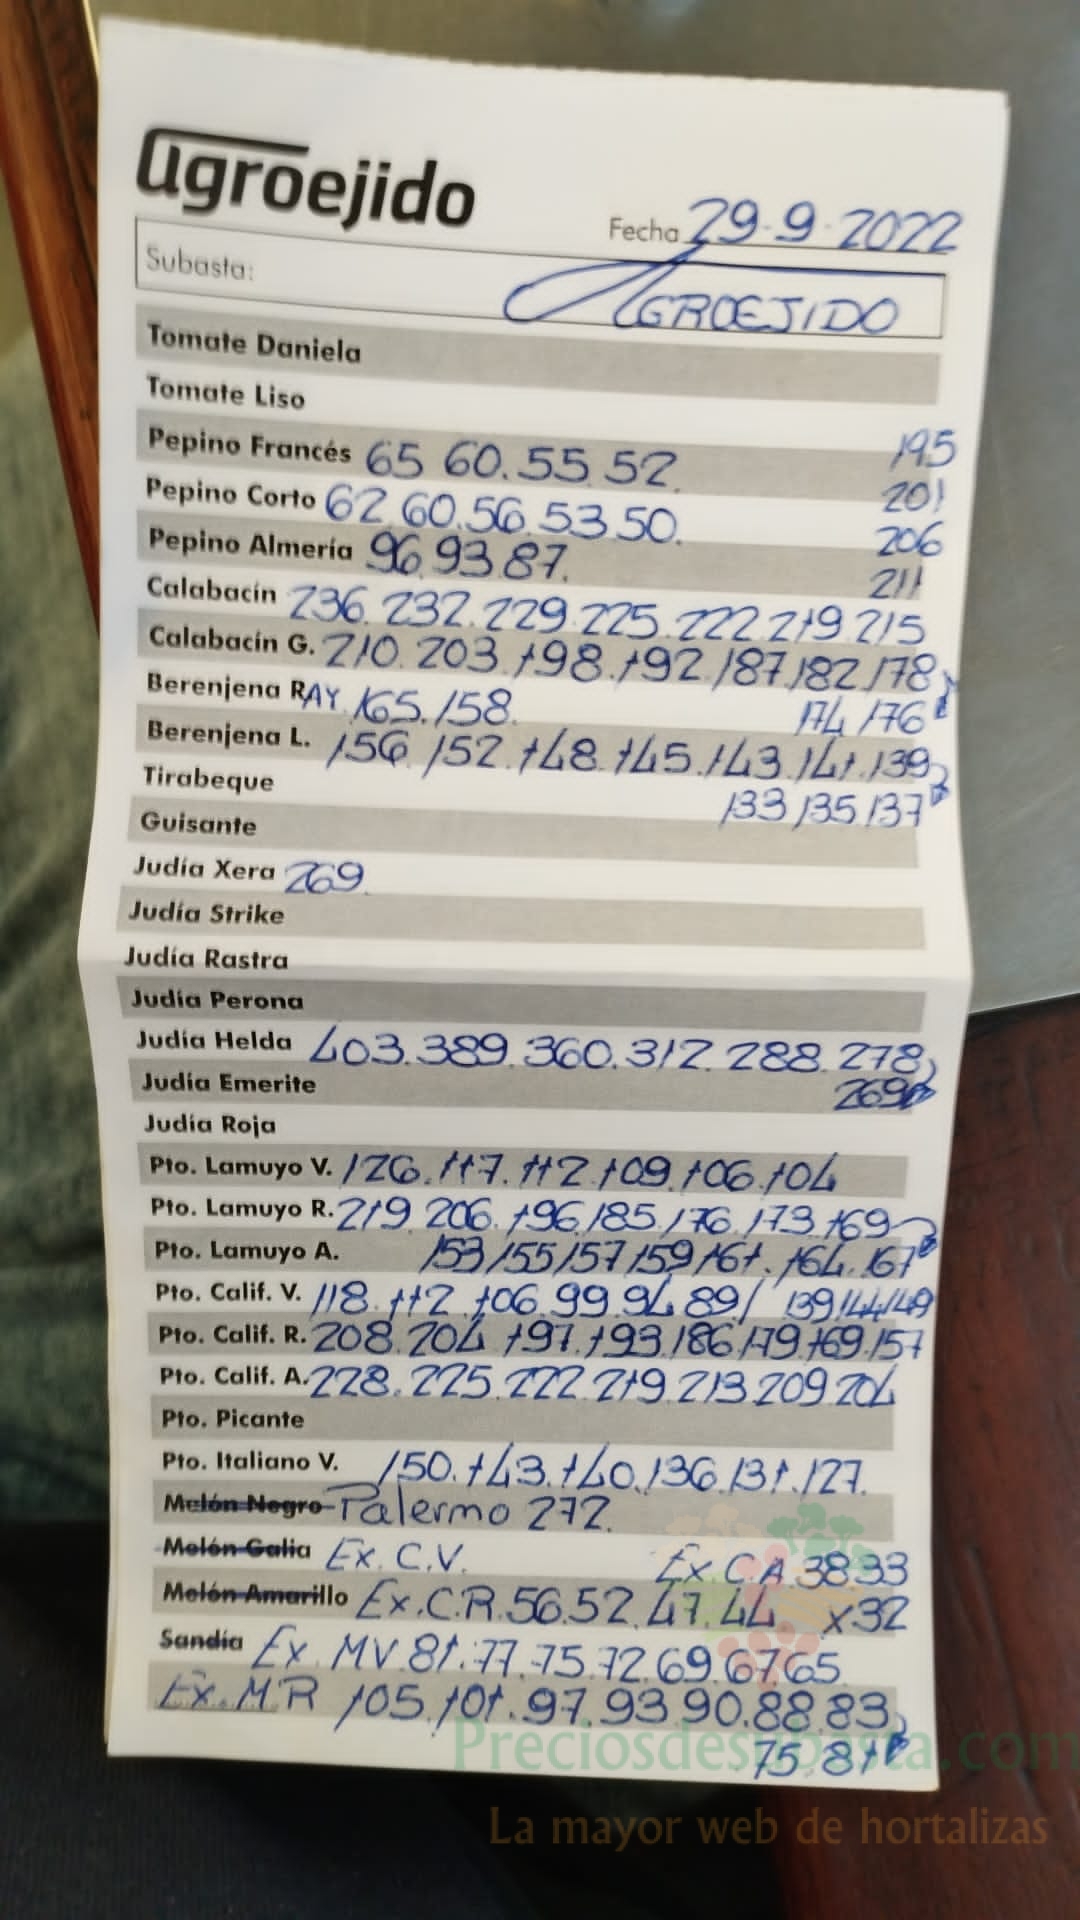 agroejido
Fecha 29-9-2022
Subasta: AGROEJIDO
Tomate Daniela
Tomate Liso
195
Pepino Francés 65 60. 55 52.
201
Pepino Corto 62 60. 56. 53. 50.
206
Pepino Almería 96. 93. 87.
211
Calabacín 236. 232. 229. 225. 222. 219. 215
Calabacín G. 210. 203. 198. 192. 187. 182. 178
174 176
Berenjena RAY 165. 158.
Berenjena L. 156 152. 148. 145. 143. 141. 139
Tirabeque
133 135 137
Guisante
Judía Xera 269.
Judía Strike
Judía Rastra
Judía Perona
Judía Helda 403. 389. 360. 312. 288. 278
269
Judía Emerite
Judía Roja
Pto. Lamuyo V. 126. 117. 112. 109. 106. 104
Pto. Lamuyo R. 219 206. 196. 185. 176. 173. 169
153 155 157 159 161. 164. 167
Pto. Lamuyo A.
Pto. Calif. V. 118. 112. 106. 99. 94. 89 / 139 144 149
Pto. Calif. R. 208. 204 197. 193. 186. 179. 169. 157
Pto. Calif. A. 228. 225. 222. 219. 213. 209 204
Pto. Picante
Pto. Italiano V. 150. 143. 140. 136. 131. 127.
Melón Negro Palermo 272.
Melón Galia Ex. C.V. Ex C.A. 38 33
Melón Amarillo Ex. C.R. 56. 52. 47. 44 x32
Sandía Ex. MV. 81. 77. 75. 72. 69. 67 65
Ex. M R 105. 101. 97. 93 90. 88 83
75. 81
Preciosdesubasta.com
La mayor web de hortalizas